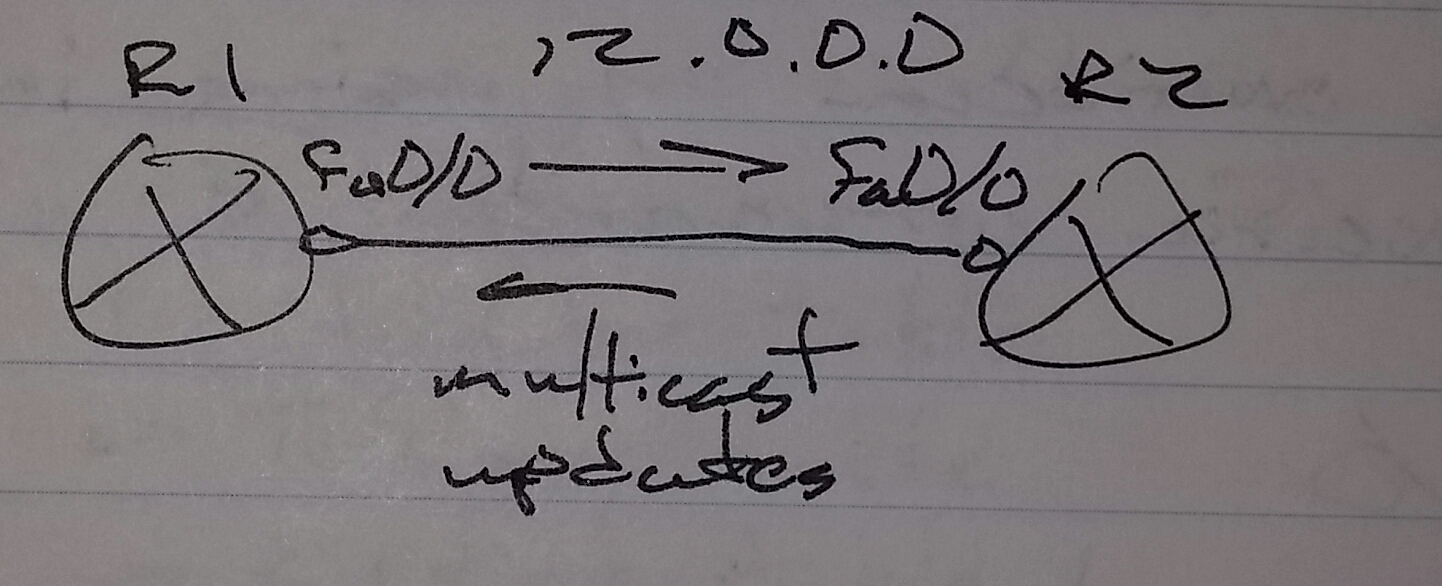 R1 12.0.0.0 R2
Fa0/0 Fa0/0
multicast
updates